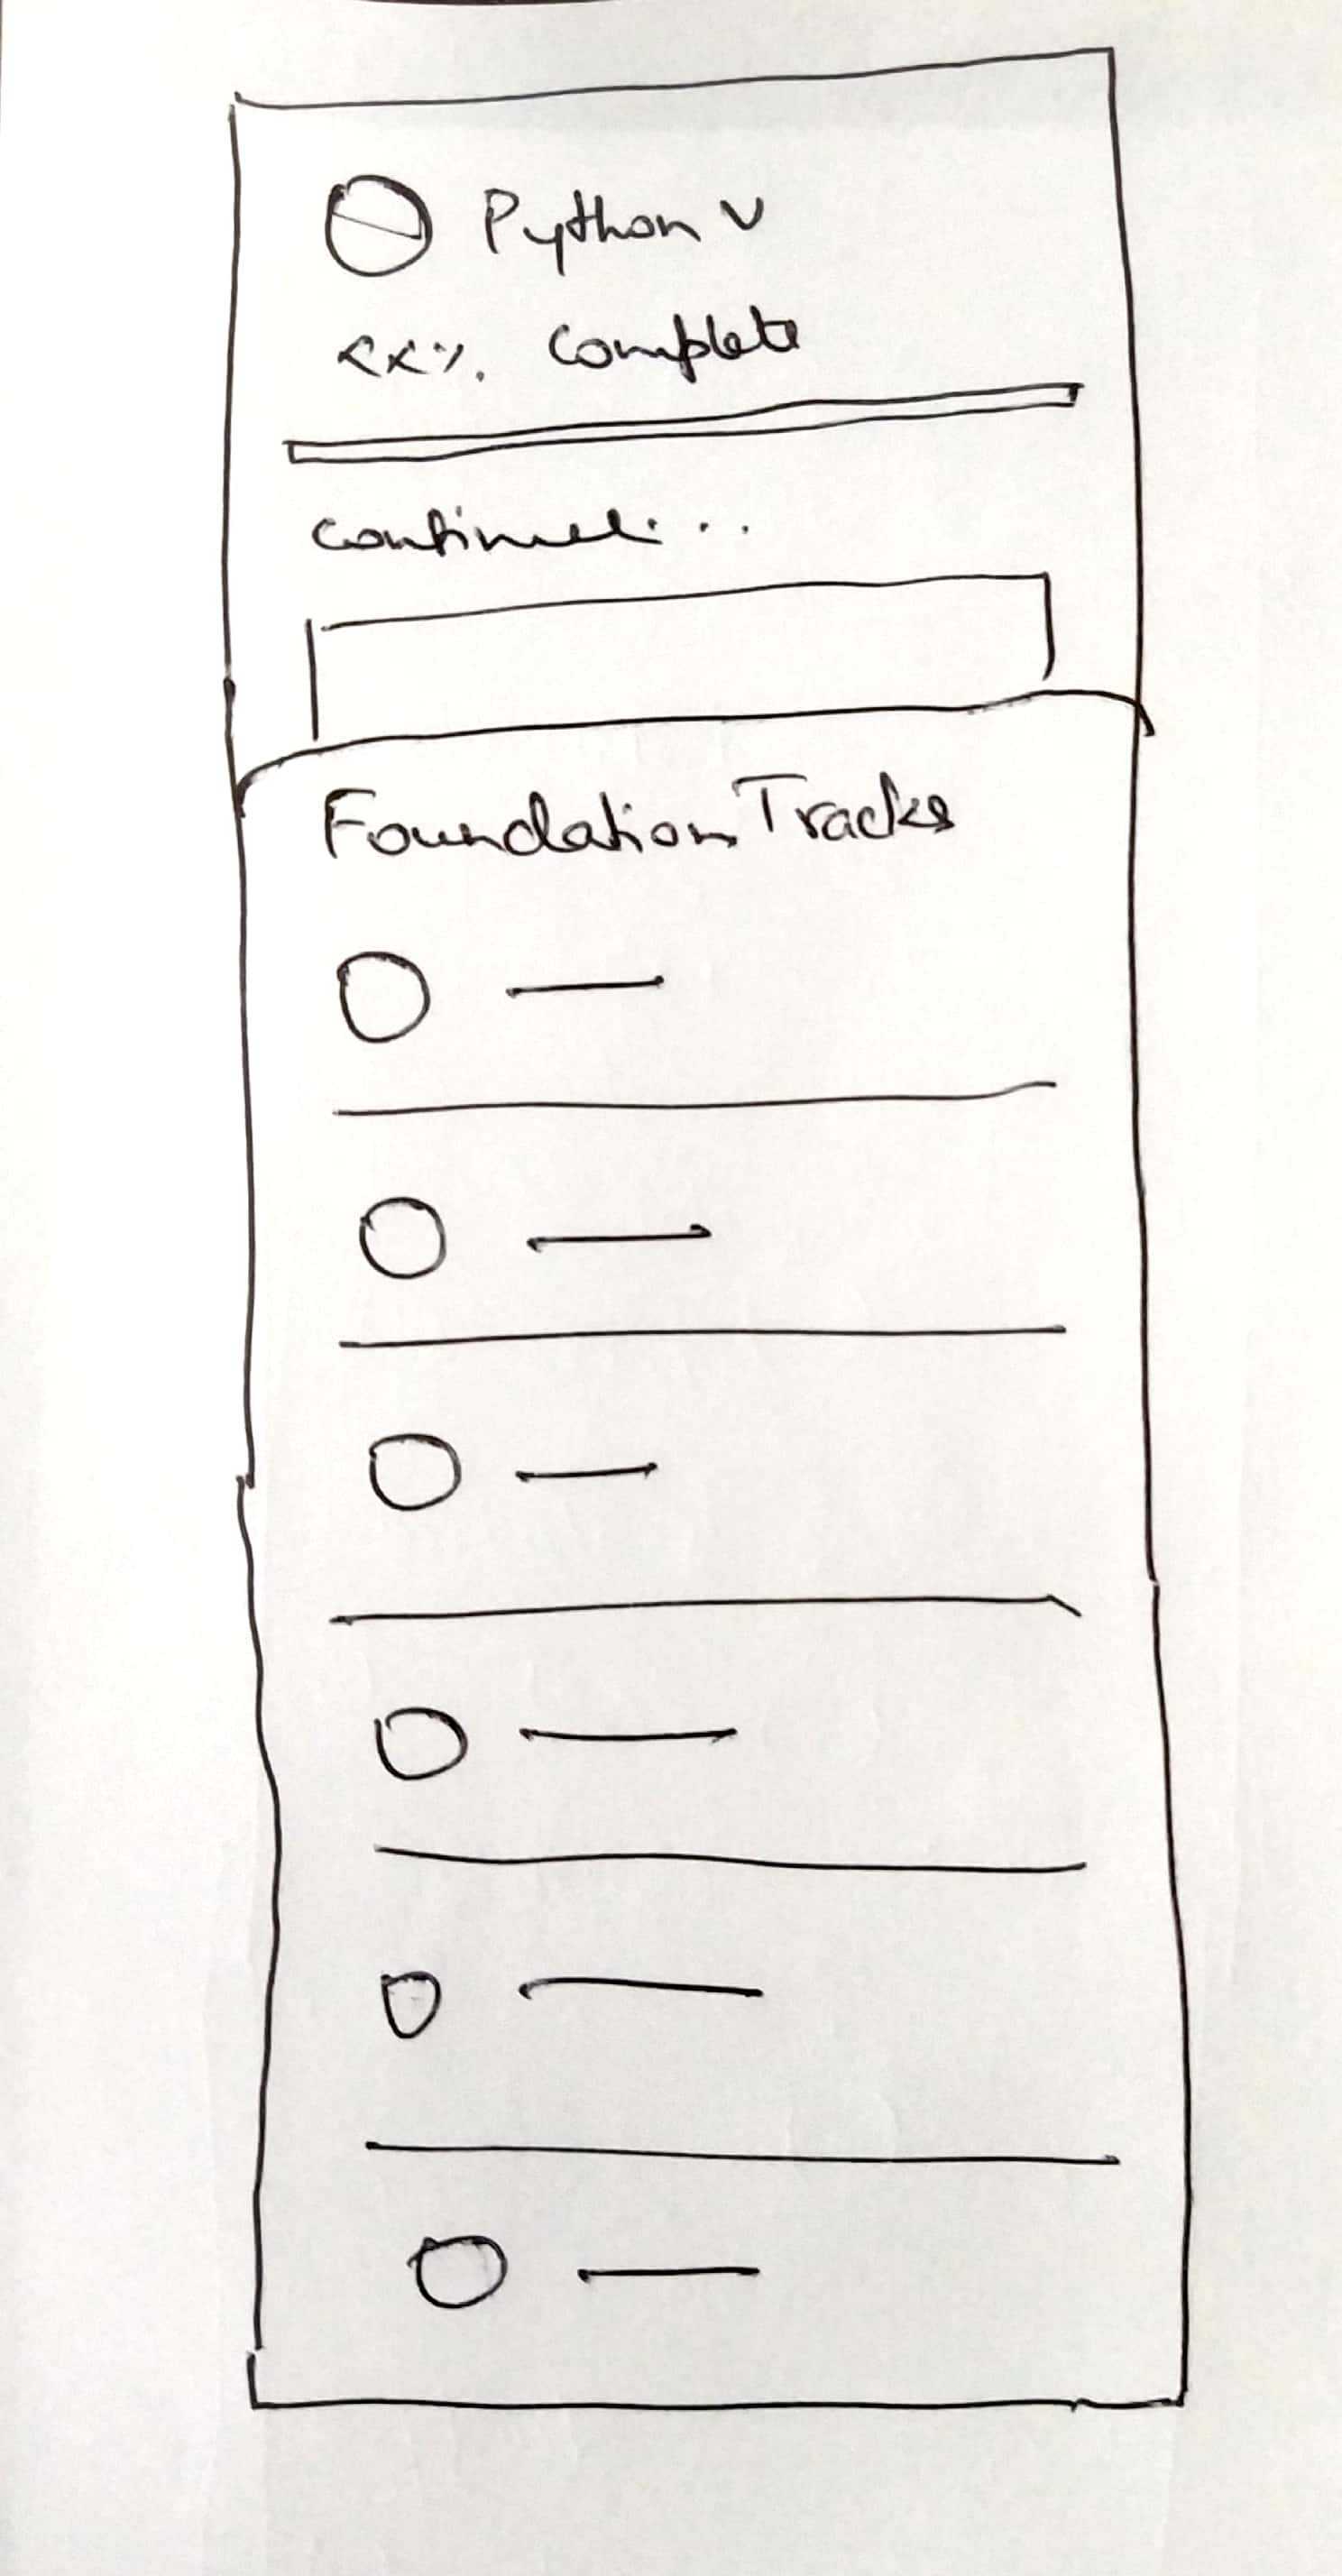 Python v
xx%. Complete
Continue...
Foundation Tracks